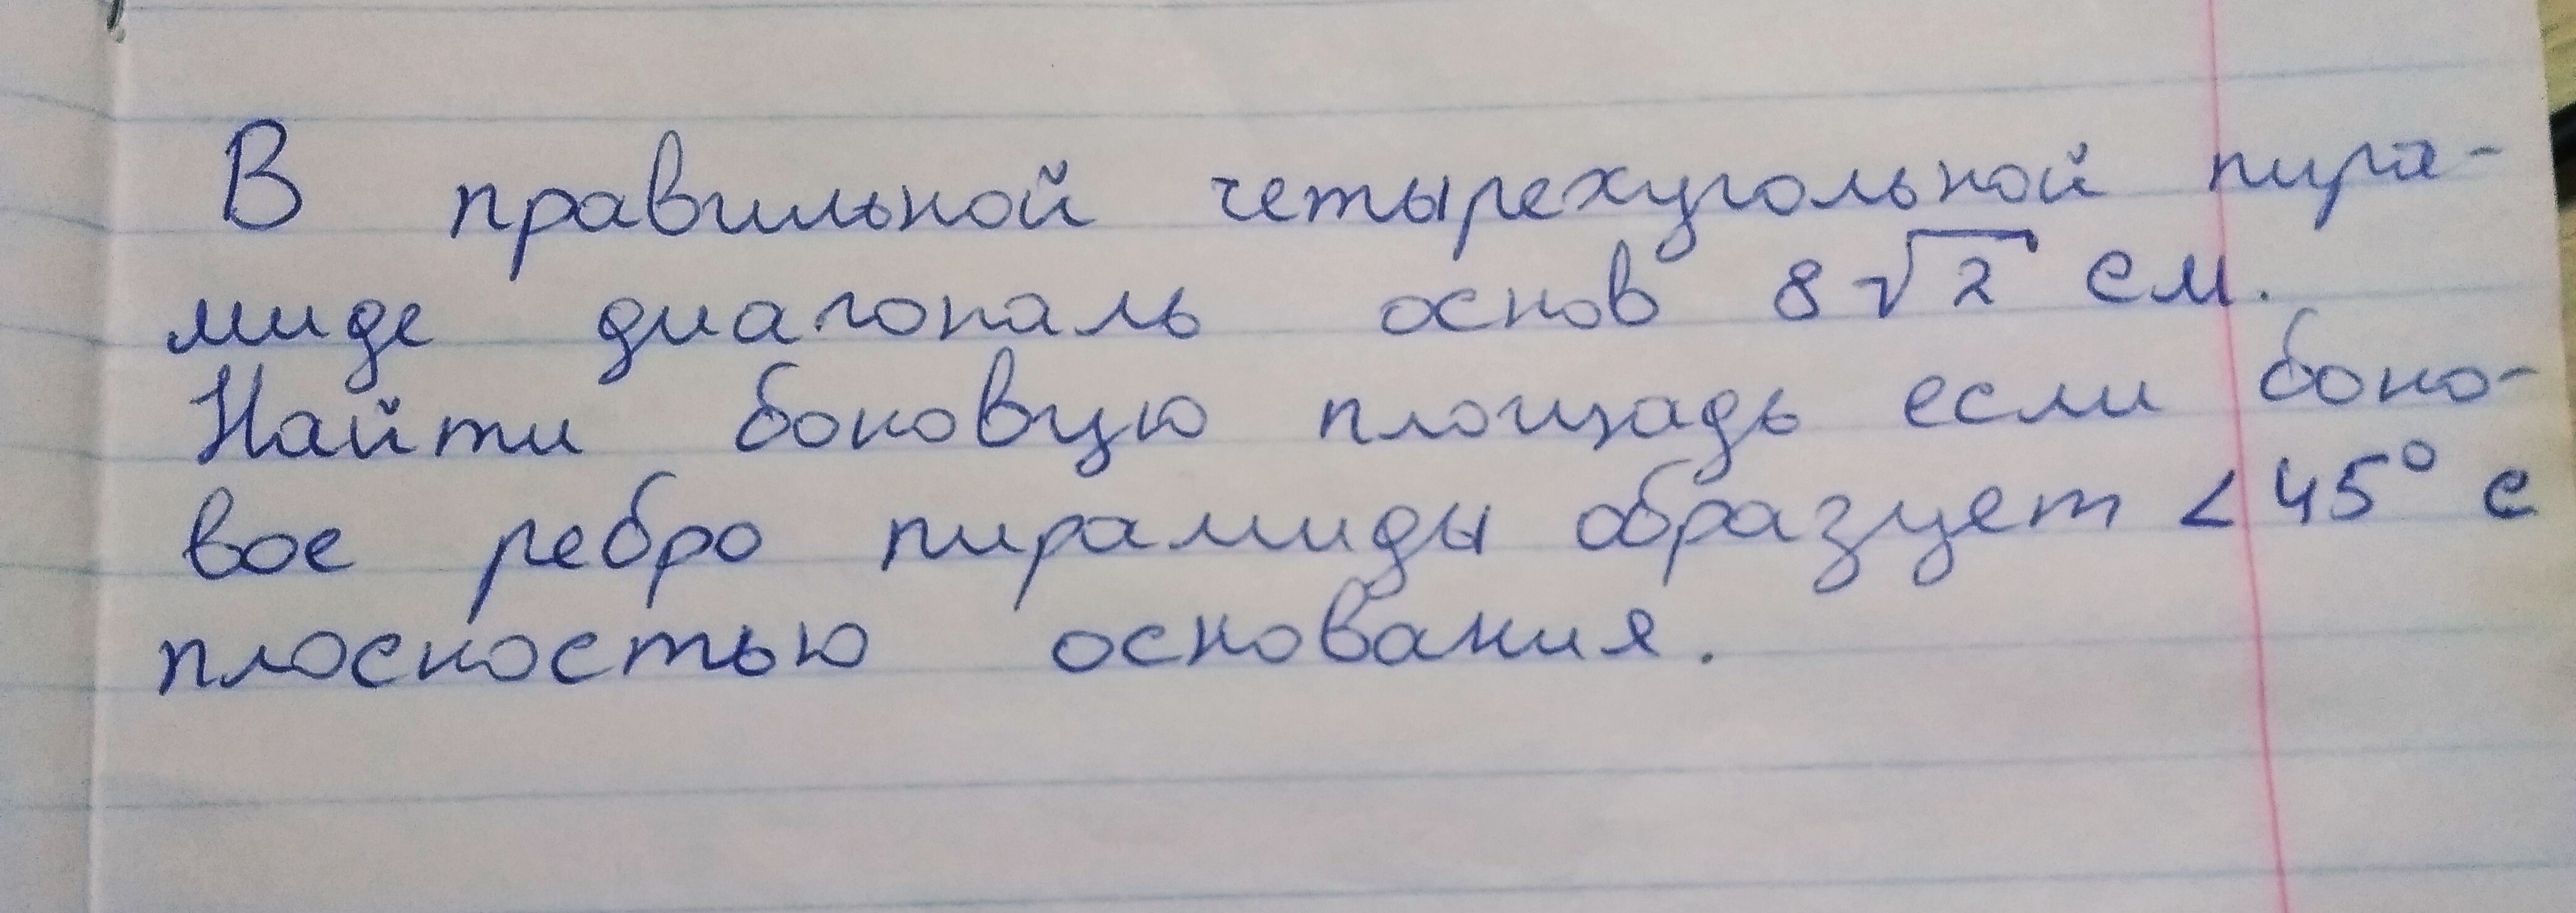 В правильной четырехугольной пира-
миде диагональ основ 8√2 см.
Найти боковую площадь если боко-
вое ребро пирамиды образует < 45° с
плоскостью основания.